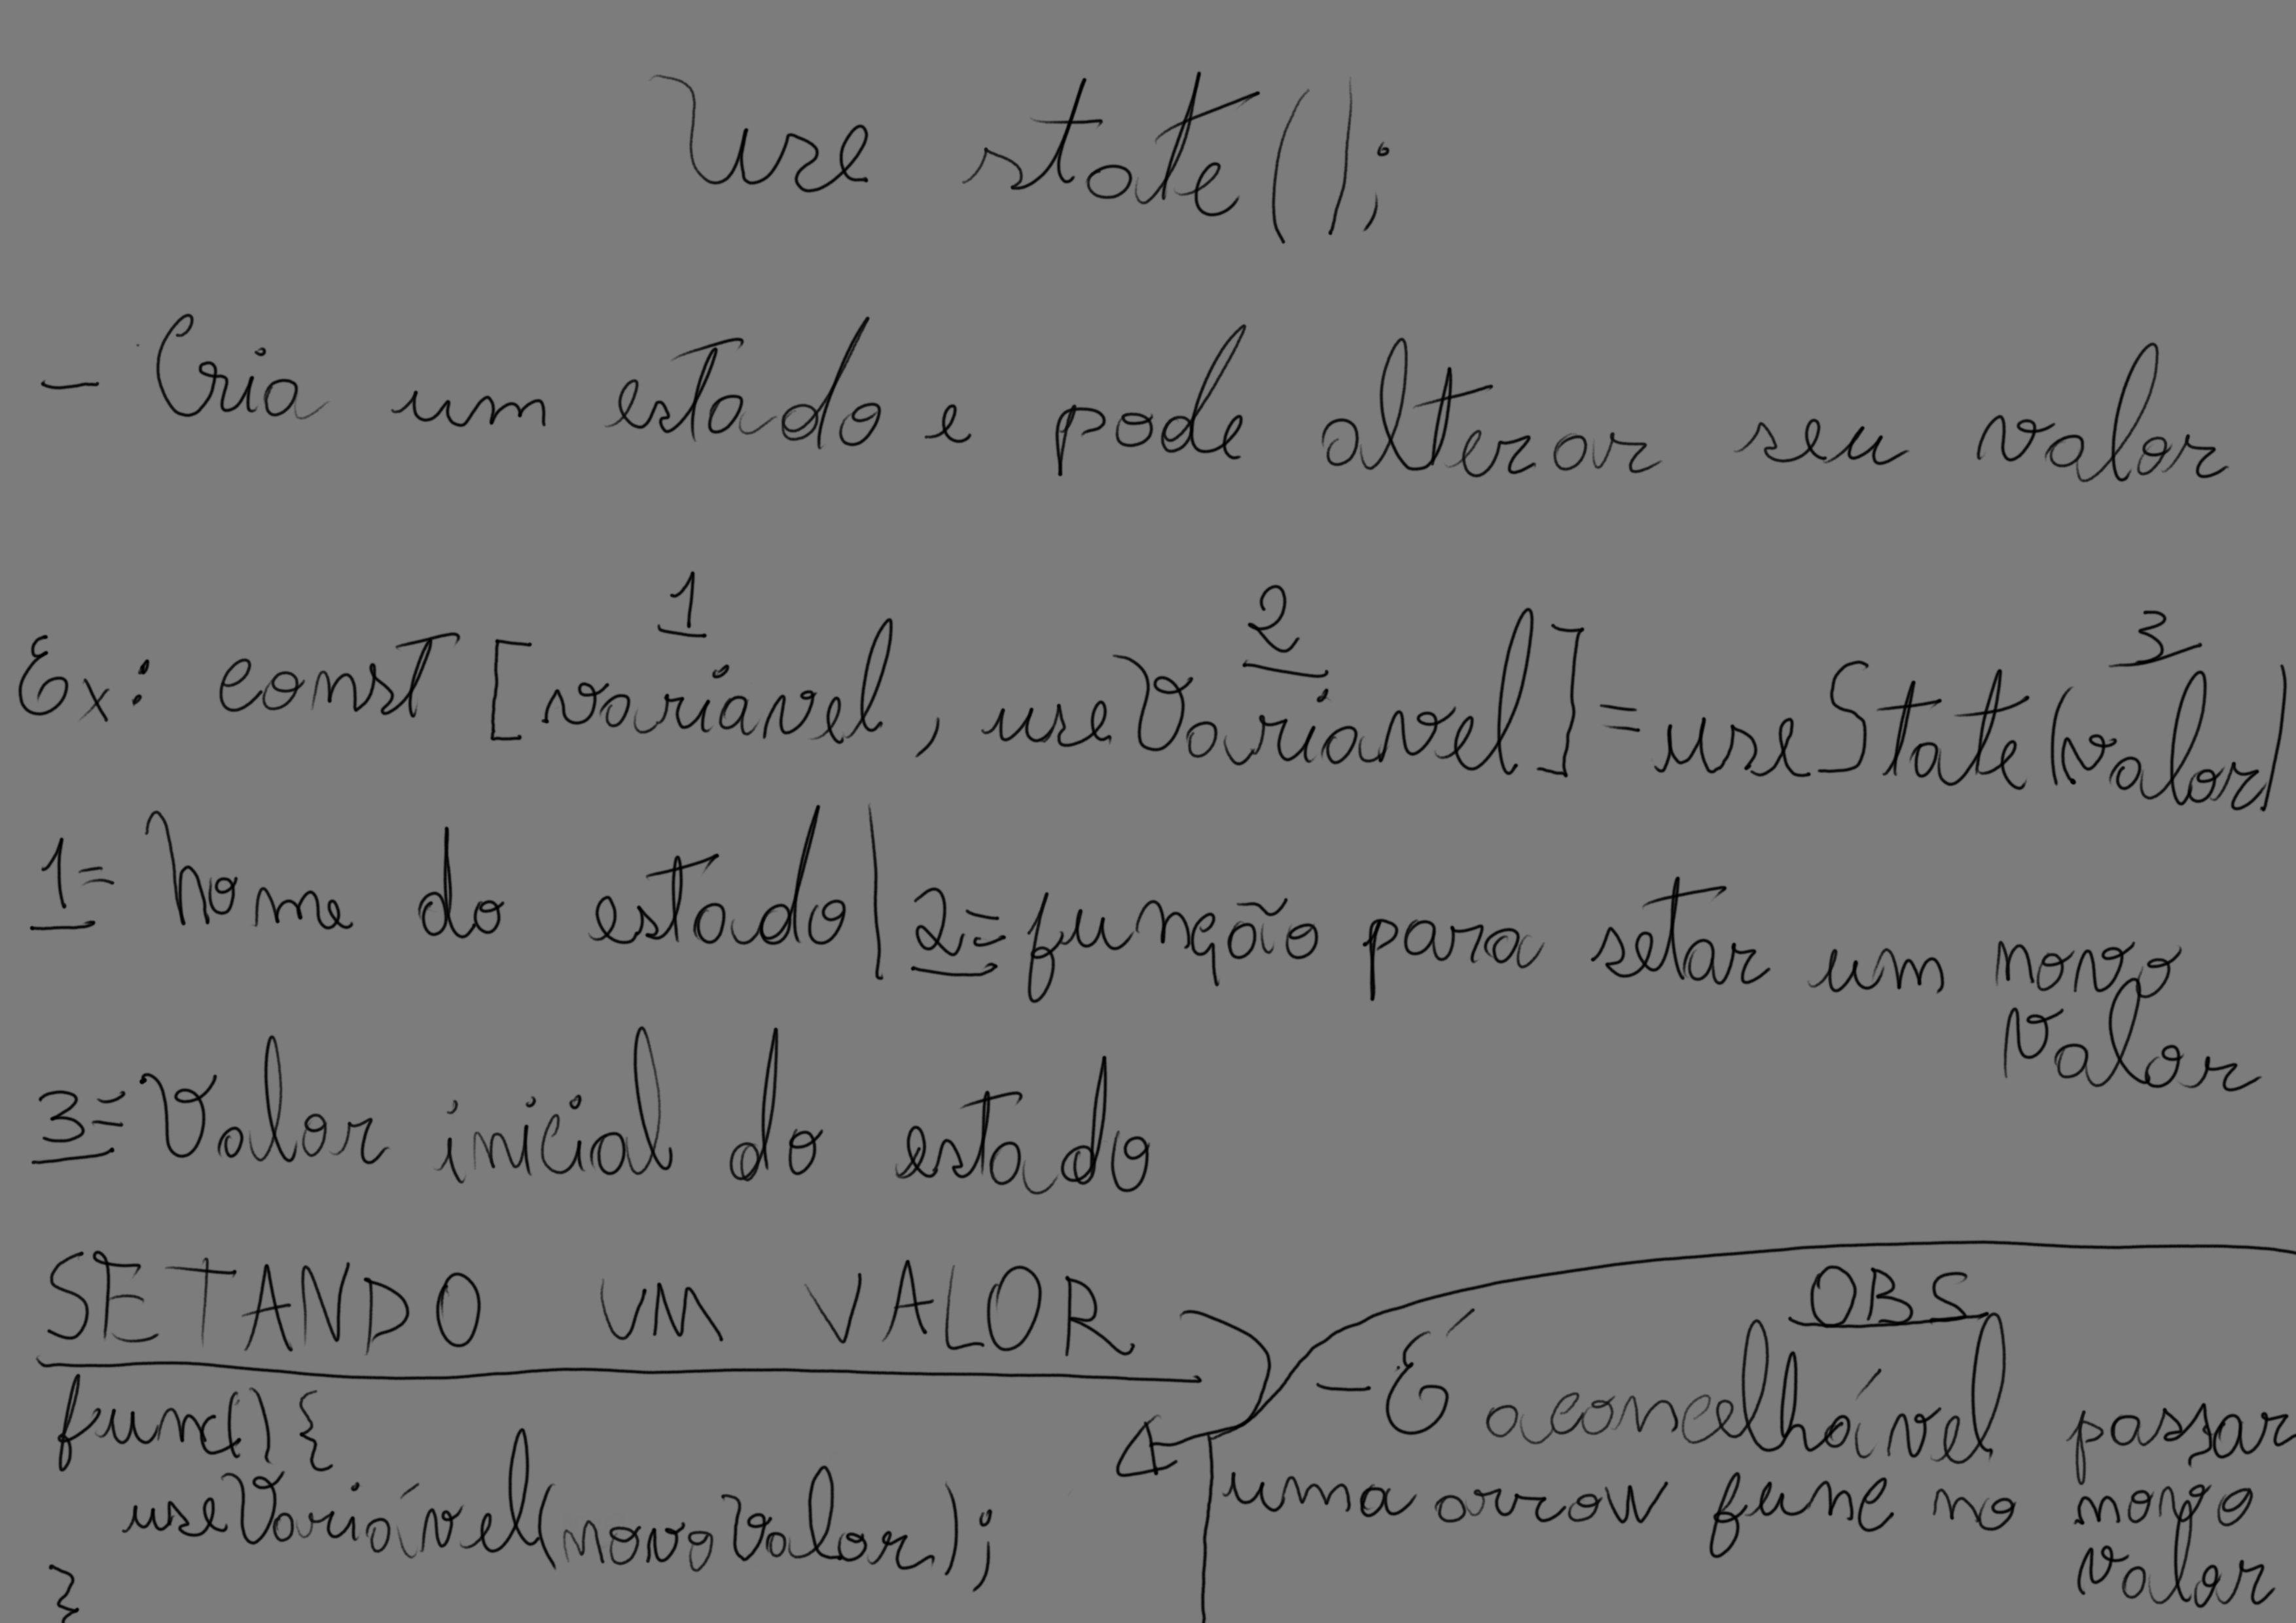 Use state();
- Cria um estado e pode alterar seu valor
1 2 3
Ex: const [variavel, useVariavel] = useState(valor)
1= Nome do estado | 2= função para setar um novo
valor
3= Valor inicial do estado
SETANDO UM VALOR
func(){
useVariável(novoValor);
}
OBS
- É aconcelhável passar
uma arrow func no novo
valor